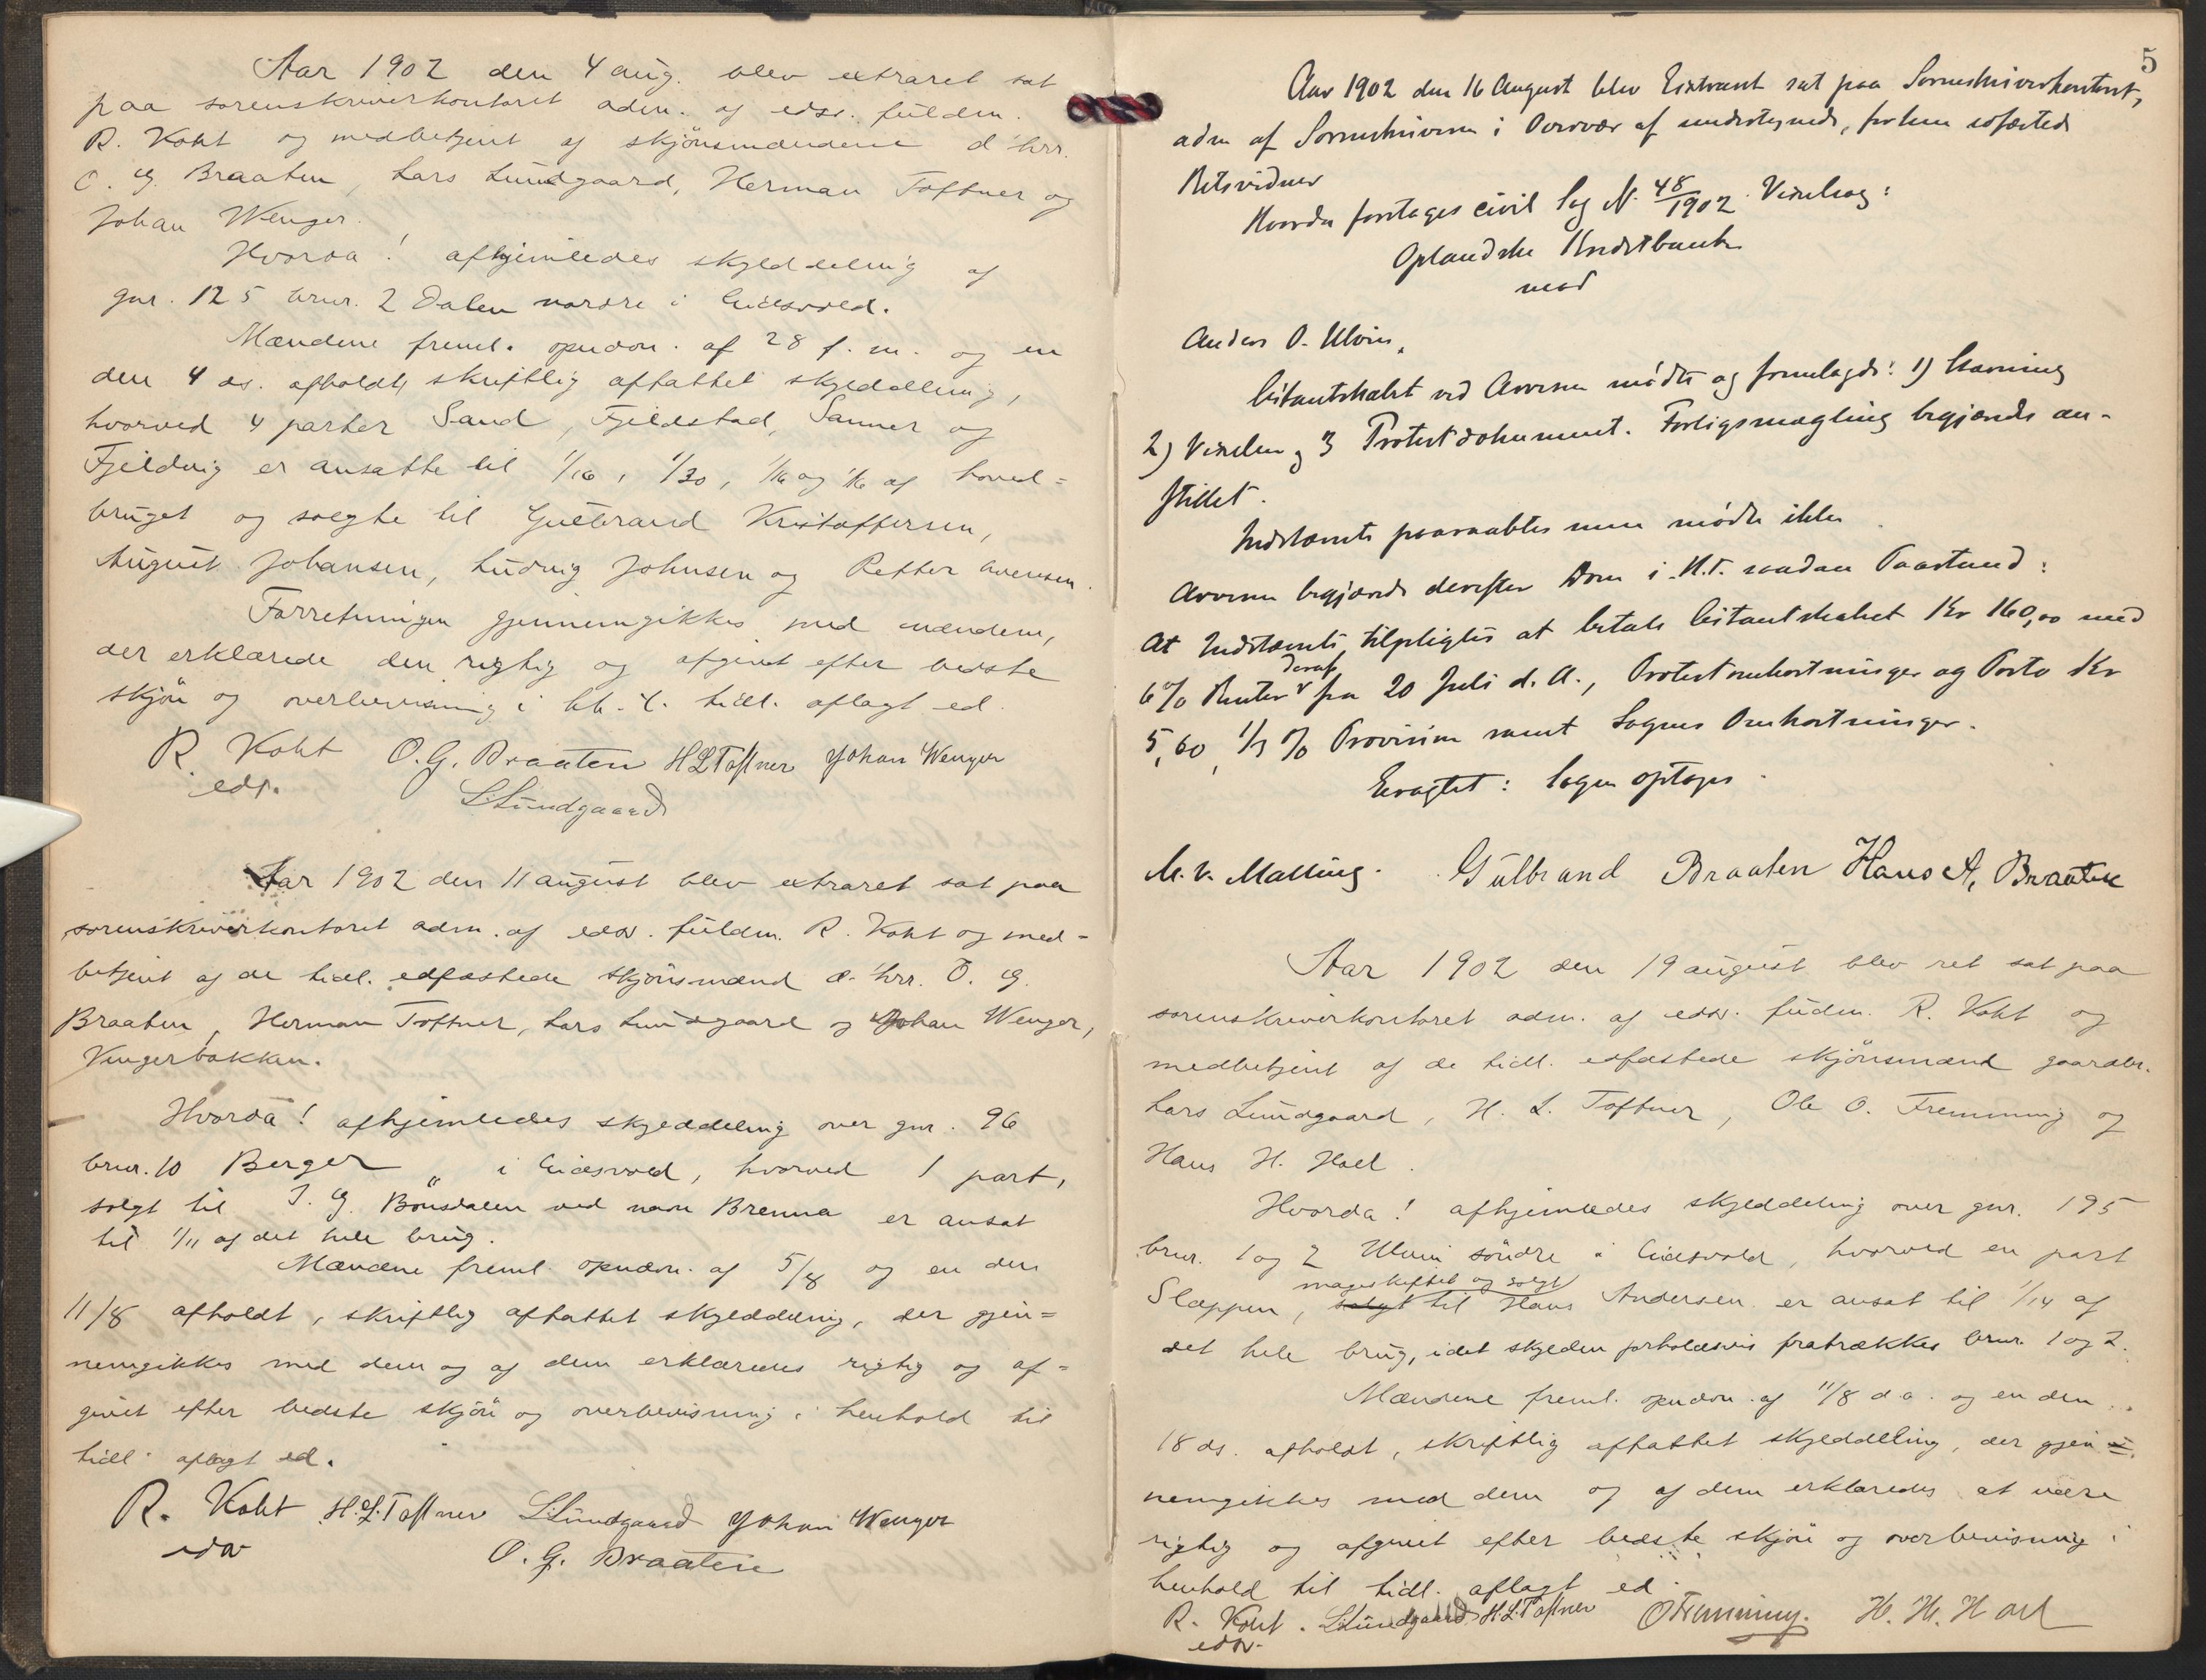 Aar 1902 den 4 aug. blev extraret sat
paa sorenskriverkontoret adm. af edsv. fuldm.
R. Koht og medbetjent af skjönsmændene d'hrr.
O. G. Braaten, Lars Lundgaard, Herman Toftner og
Johan Wenger.
Hvorda! afhjemledes skylddeling af
gnr. 125 brnr. 2 Dalen nordre i Eidsvold.
Mændene freml. opnævn. af 28 f. m. og en
den 4 ds. afholdt, skriftlig affattet skylddeling,
hvorved 4 parter Sand, Fjeldstad, Sanner og
Fjeldvig er ansatte til 1/16, 1/30, 1/16 og 1/16 af hoved=
bruget og solgte til Gulbrand Kristoffersen,
August Johansen, Ludvig Johnsen og Petter Evensen.
Forretningen gjennemgikkes med mændene,
der erklærede den rigtig og afgivet efter bedste
skjön og overbevisning i hh. t. tidl. aflagt ed.
R. Koht O. G. Braaten H L Toftner Johan Wenger
edsv. L. Lundgaard
Aar 1902 den 11 august blev extraret sat paa
sorenskriverkontoret adm. af edsv. fuldm. R. Koht og med-
betjent af de tidl. edfæstede skjönsmænd d. hrr. O. G.
Braaten, Herman Toftner, Lars Lundgaard og Johan Wenger,
Vengerbakken.
Hvorda! afhjemledes skylddeling over gnr. 96
brnr. 10 Berger " i Eidsvold, hvorved 1 part,
solgt til J. G. Bönsdalen ved navn Brenna er ansat
til 1/11 af det hele brug.
Mændene freml. opnævn. af 5/8 og en den
11/8 afholdt, skriftlig affattet skylddeling, der gjen=
nemgikkes med dem og af dem erklæredes rigtig og af=
givet efter bedste skjön og overbevisning i henhold til
tidl. aflagt ed.
R. Koht H. L. Toftner L. Lundgaard Johan Wenger
edsv O. G. Braaten
5
Aar 1902 den 16 August blev Extraret sat paa Sorenskriverkontoret,
adm af Sorenskriveren i Overvær af undertegnede, forhen edfæstede
Retsvidner
Hvorda foretages civil Sag N. 48/1902 Vexelsag:
Oplandske Kreditbank
mod
Anders O. Ulvin.
Citantskabet ved Arvesen mødte og fremlagde: 1) Stævning
2) Vexelen og 3 Protestdokument. Forligsmægling begjærede an-
stillet.
Indstævnte paaraabtes men mødte ikke.
Arvesen begjærede derefter Dom i H.T. saadan Paastand:
At Indstævnte tilpligtes at betale Citantskabet Kr 160,00 med
6% Renter deraf fra 20 Juli d. A., Protestomkostninger og Porto Kr
5,60, 1/3 % Provision samt Sagens Omkostninger.
Eragtet: Sagen optages.
M. V. Malling. Gulbrand Braaten Hans A, Braaten
Aar 1902 den 19 august blev ret sat paa
sorenskriverkontoret adm. af edsv. fuldm. R. Koht og
medbetjent af de tidl. edfæstede skjönsmænd gaardbr.
Lars Lundgaard, H. L. Toftner, Ole O. Fremming og
Hans H. Hoel.
Hvorda! afhjemledes skylddeling over gnr. 195
brnr. 1 og 2 Ulvin söndre i Eidsvold, hvorved en part
Slæppen, solgt mageskiftet og solgt til Hans Andersen er ansat til 1/14 af
det hele brug, idet skylden forholdsvis fratrækkes brnr. 1 og 2.
Mændene freml. opnævn. af 11/8 d a. og en den
18 ds. afholdt, skriftlig affattet skylddeling, der gjen=
nemgikkes med dem og af dem erklæredes at være
rigtig og afgivet efter bedste skjön og overbevisning i
henhold til tidl. aflagt ed.
R. Koht. L. Lundgaard H. L. Toftner O Fremming. H. H. Hoel
edsv.